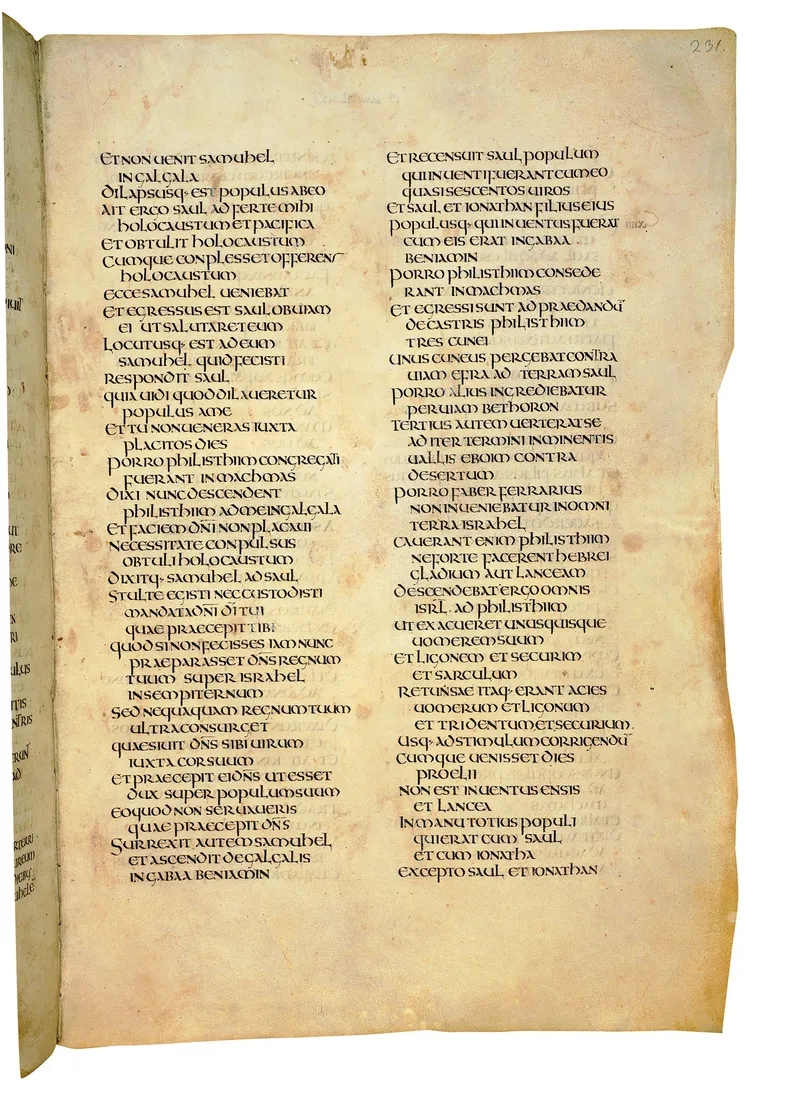 231.
ET NON UENIT SAMUHEL
IN GALGALA
DILAPSUSQ· EST POPULUS AB EO
AIT ERGO SAUL ADFERTE MIHI
HOLOCAUSTUM ET PACIFICA
ET OBTULIT HOLOCAUSTUM
CUMQUE CONPLESSET OFFERENS
HOLOCAUSTUM
ECCE SAMUHEL UENIEBAT
ET EGRESSUS EST SAUL OBUIAM
EI UT SALUTARET EUM
LOCUTUSQ· EST AD EUM
SAMUHEL QUID FECISTI
RESPONDIT SAUL
QUIA UIDI QUOD DILAUERETUR
POPULUS A ME
ET TU NON UENERAS IUXTA
PLACITOS DIES
PORRO PHILISTHIIM CONGREGATI
FUERANT IN MACHMAS
DIXI NUNC DESCENDENT
PHILISTHIIM AD ME IN GALGALA
ET FACIEM DN̄I NON PLACAUI
NECESSITATE CONPULSUS
OBTULI HOLOCAUSTUM
DIXITQ· SAMUHEL AD SAUL
STULTE EGISTI NEC CUSTODISTI
MANDATA DN̄I DĪ TUI
QUAE PRAECEPIT TIBI
QUOD SI NON FECISSES IAM NUNC
PRAEPARASSET DN̄S REGNUM
TUUM SUPER ISRAHEL
IN SEMPITERNUM
SED NEQUAQUAM REGNUM TUUM
ULTRA CONSURGET
QUAESIUIT DN̄S SIBI UIRUM
IUXTA COR SUUM
ET PRAECEPIT EI DN̄S UT ESSET
DUX SUPER POPULUM SUUM
EO QUOD NON SERUAUERIS
QUAE PRAECEPIT DN̄S
SURREXIT AUTEM SAMUHEL
ET ASCENDIT DE GALGALIS
IN GABAA BENIAMIN
ET RECENSUIT SAUL POPULUM
QUI INUENTI FUERANT CUM EO
QUASI SESCENTOS UIROS
ET SAUL ET IONATHAN FILIUS EIUS
POPULUSQ· QUI INUENTUS FUERAT
CUM EIS ERAT IN GABAA
BENIAMIN
PORRO PHILISTHIIM CONSEDE
RANT IN MACHMAS
ET EGRESSI SUNT AD PRAEDANDŪ
DE CASTRIS PHILISTHIIM
TRES CUNEI
UNUS CUNEUS PERGEBAT CONTRA
UIAM EFRA AD TERRAM SAUL
PORRO ALIUS INGREDIEBATUR
PER UIAM BETHORON
TERTIUS AUTEM UERTERAT SE
AD ITER TERMINI INMINENTIS
UALLIS EBOIM CONTRA
DESERTUM
PORRO FABER FERRARIUS
NON INUENIEBATUR IN OMNI
TERRA ISRAHEL
CAUERANT ENIM PHILISTHIIM
NE FORTE FACERENT HEBREI
GLADIUM AUT LANCEAM
DESCENDEBAT ERGO OMNIS
ISRL̄. AD PHILISTHIIM
UT EXACUERET UNUSQUISQUE
UOMEREM SUUM
ET LIGONEM ET SECURIM
ET SARCULUM
RETUNSAE ITAQ· ERANT ACIES
UOMERUM ET LIGONUM
ET TRIDENTUM, ET SECURIUM.
USQ· AD STIMULUM CORRIGENDŪ
CUMQUE UENISSET DIES
PROELII
NON EST INUENTUS ENSIS
ET LANCEA
IN MANU TOTIUS POPULI
QUI ERAT CUM SAUL
ET CUM IONATHA
EXCEPTO SAUL ET IONATHAN